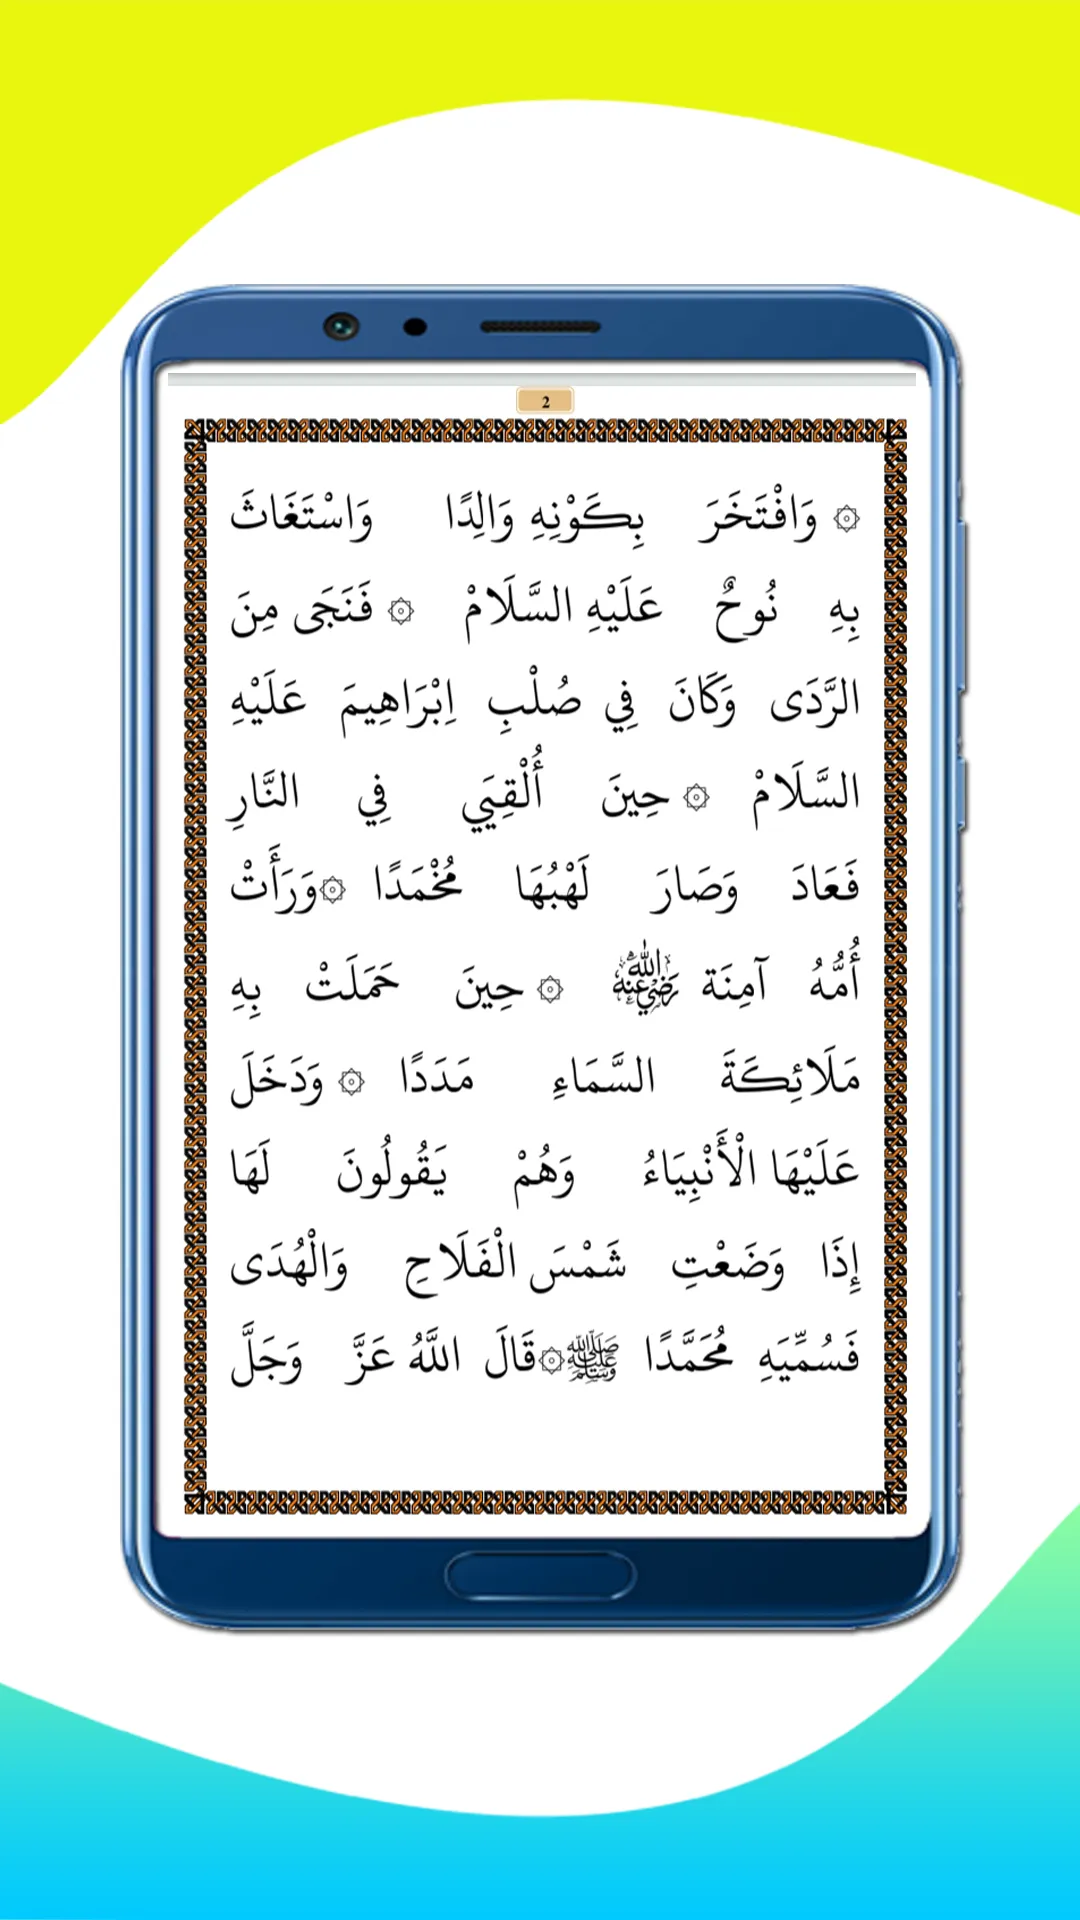 2
۞ وَافْتَخَرَ بِكَوْنِهِ وَالِدًا وَاسْتَغَاثَ
بِهِ نُوحٌ عَلَيْهِ السَّلَامْ ۞ فَنَجَى مِنَ
الرَّدَى وَكَانَ فِي صُلْبِ اِبْرَاهِيمَ عَلَيْهِ
السَّلَامْ ۞ حِينَ أُلْقِيَي فِي النَّارِ
فَعَادَ وَصَارَ لَهْبُهَا مُخْمَدًا ۞وَرَأَتْ
أُمُّهُ آمِنَة رَضِيَ اللّٰهُ عَنْهُ ۞ حِينَ حَمَلَتْ بِهِ
مَلَائِكَةَ السَّمَاءِ مَدَدًا ۞ وَدَخَلَ
عَلَيْهَا الْأَنْبِيَاءُ وَهُمْ يَقُولُونَ لَهَا
إِذَا وَضَعْتِ شَمْسَ الْفَلَاحِ وَالْهُدَى
فَسُمِّيَهِ مُحَمَّدًا ﷺ۞قَالَ اللَّهُ عَزَّ وَجَلَّ